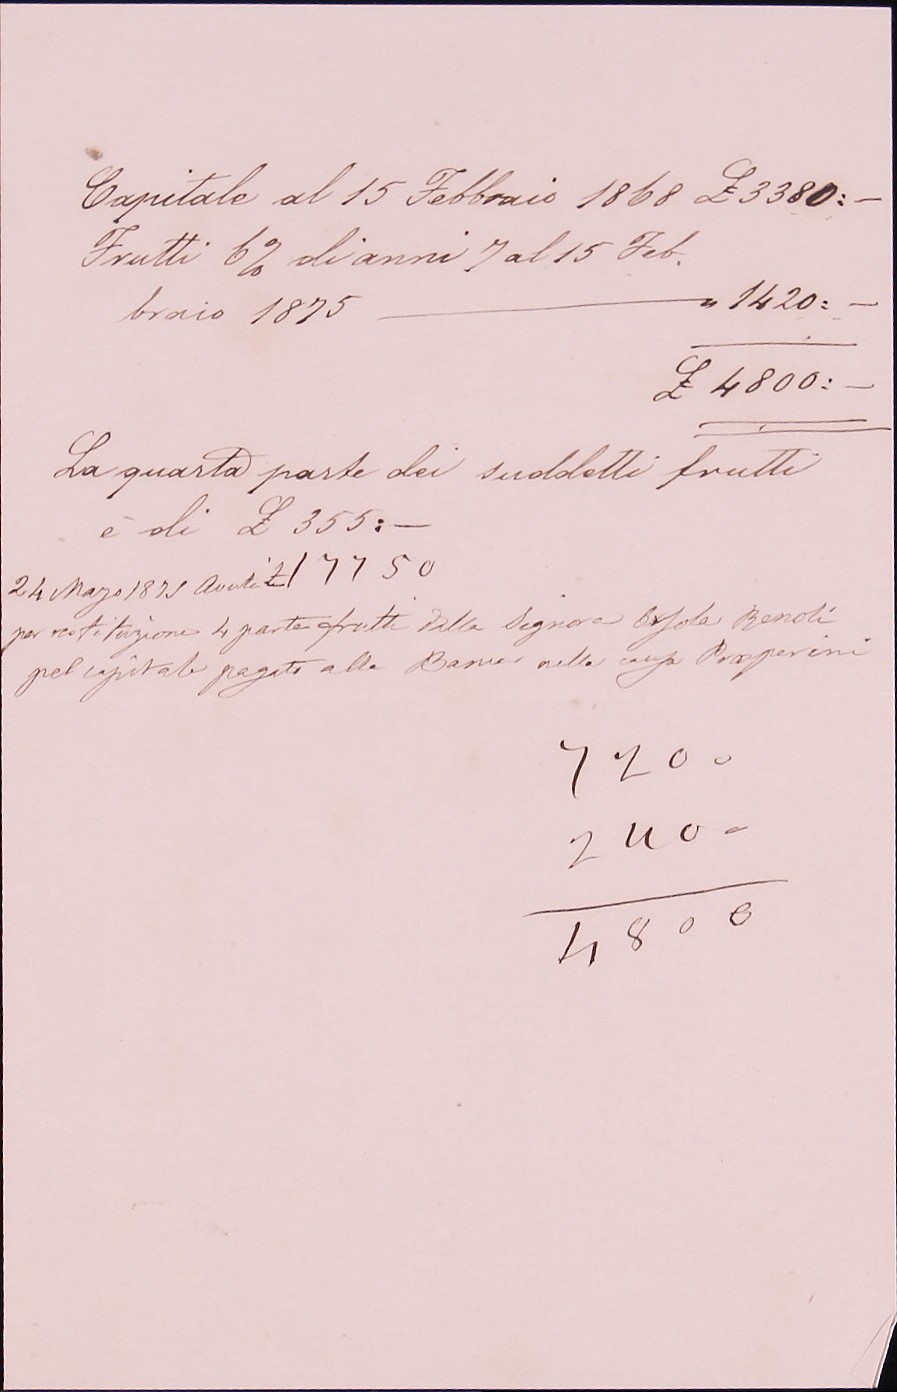 Capitale al 15 Febbraio 1868 £ 3380:—
Frutti 6% di anni 7 al 15 Feb.
braio 1875 ——— „ 1420:—
£ 4800:—
La quarta parte dei suddetti frutti
è di £ 355:—
24 Marzo 1875 Avuti £ 177 50
per restituzione 4 parte frutti dalla Signora Benoli
pel capitale pagato alla nella causa Prosperini
720 0
240 -
4800